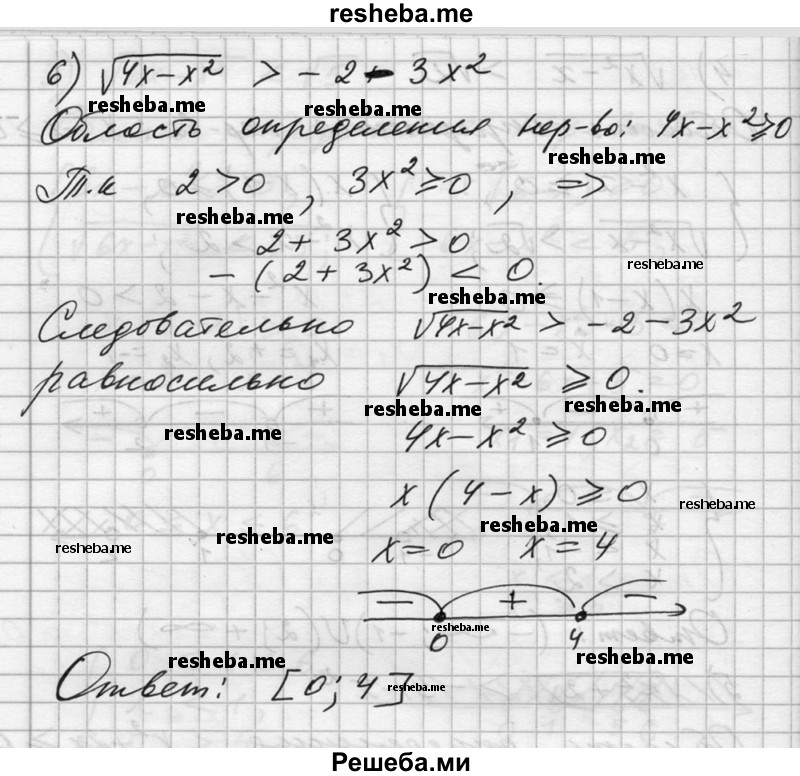 resheba.me
6) √4x-x² > -2 - 3x²
resheba.me resheba.me
Область определения нер-во: 4x-x²⩾0
resheba.me
Т.к 2>0, 3x²⩾0, =>
resheba.me
2+3x²>0
-(2+3x²)<0. resheba.me
resheba.me
Следовательно √4x-x² > -2-3x²
равносильно √4x-x² ⩾0.
resheba.me resheba.me
resheba.me 4x-x²⩾0
x(4-x)⩾0 resheba.me
resheba.me
resheba.me resheba.me
x=0 x=4
- + -
resheba.me
0 4
resheba.me resheba.me
Ответ: [0; 4] resheba.me
Решеба.ми